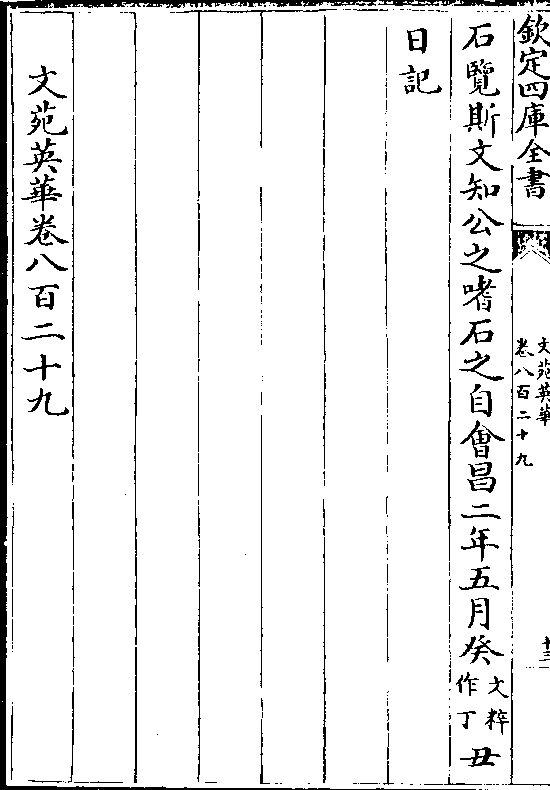 欽定四庫全書
文苑英華
卷八百二十九
十三
石覽斯文知公之嗜石之自會昌二年五月癸文粹作丁丑
日記
文苑英華卷八百二十九